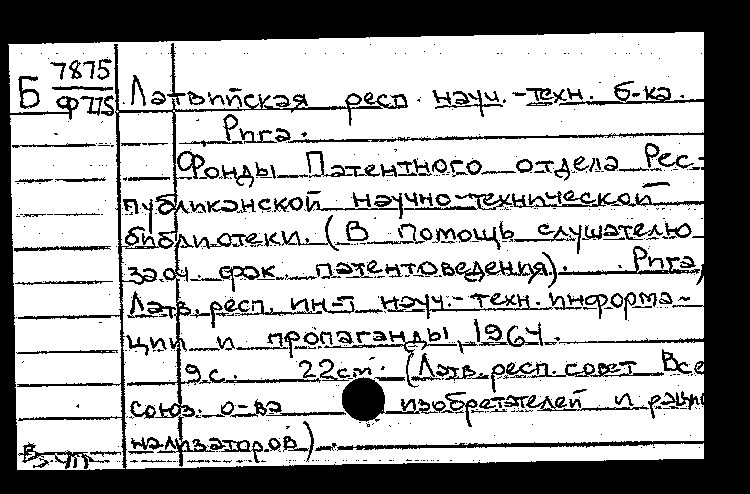 Б 7875
Латвийская респ. науч.-техн. б-ка.
Рига.
Фонды Патентного отдела Рес-
публиканской научно-технической
библиотеки. (В помощь слушателю
заоч. фак. патентоведения). Рига,
Латв. респ. ин-т науч.-техн. информа-
ции и пропаганды, 1964.
9 с. 22 см. (Латв. респ. совет Все
союз. о-ва изобретателей и рацио
нализаторов).